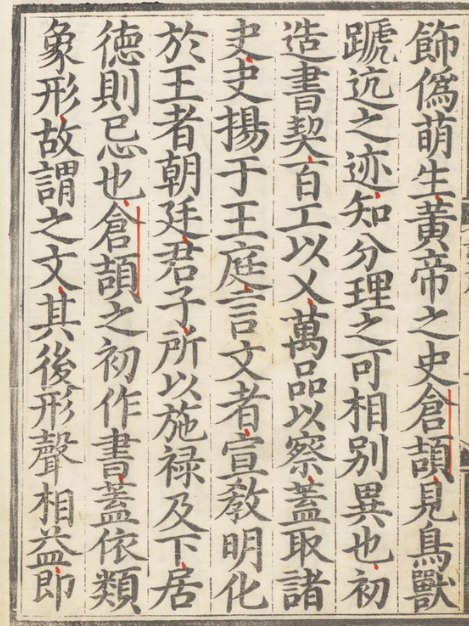 飾僞萌生黃帝之史倉頡見鳥獸
蹏迒之迹知分理之可相别異也初
造書契百工以乂萬品以察蓋取諸
夬夬揚于王庭言文者宣敎明化
於王者朝廷君子所以施禄及下居
德則忌也倉頡之初作書蓋依類
象形故謂之文其後形聲相益即